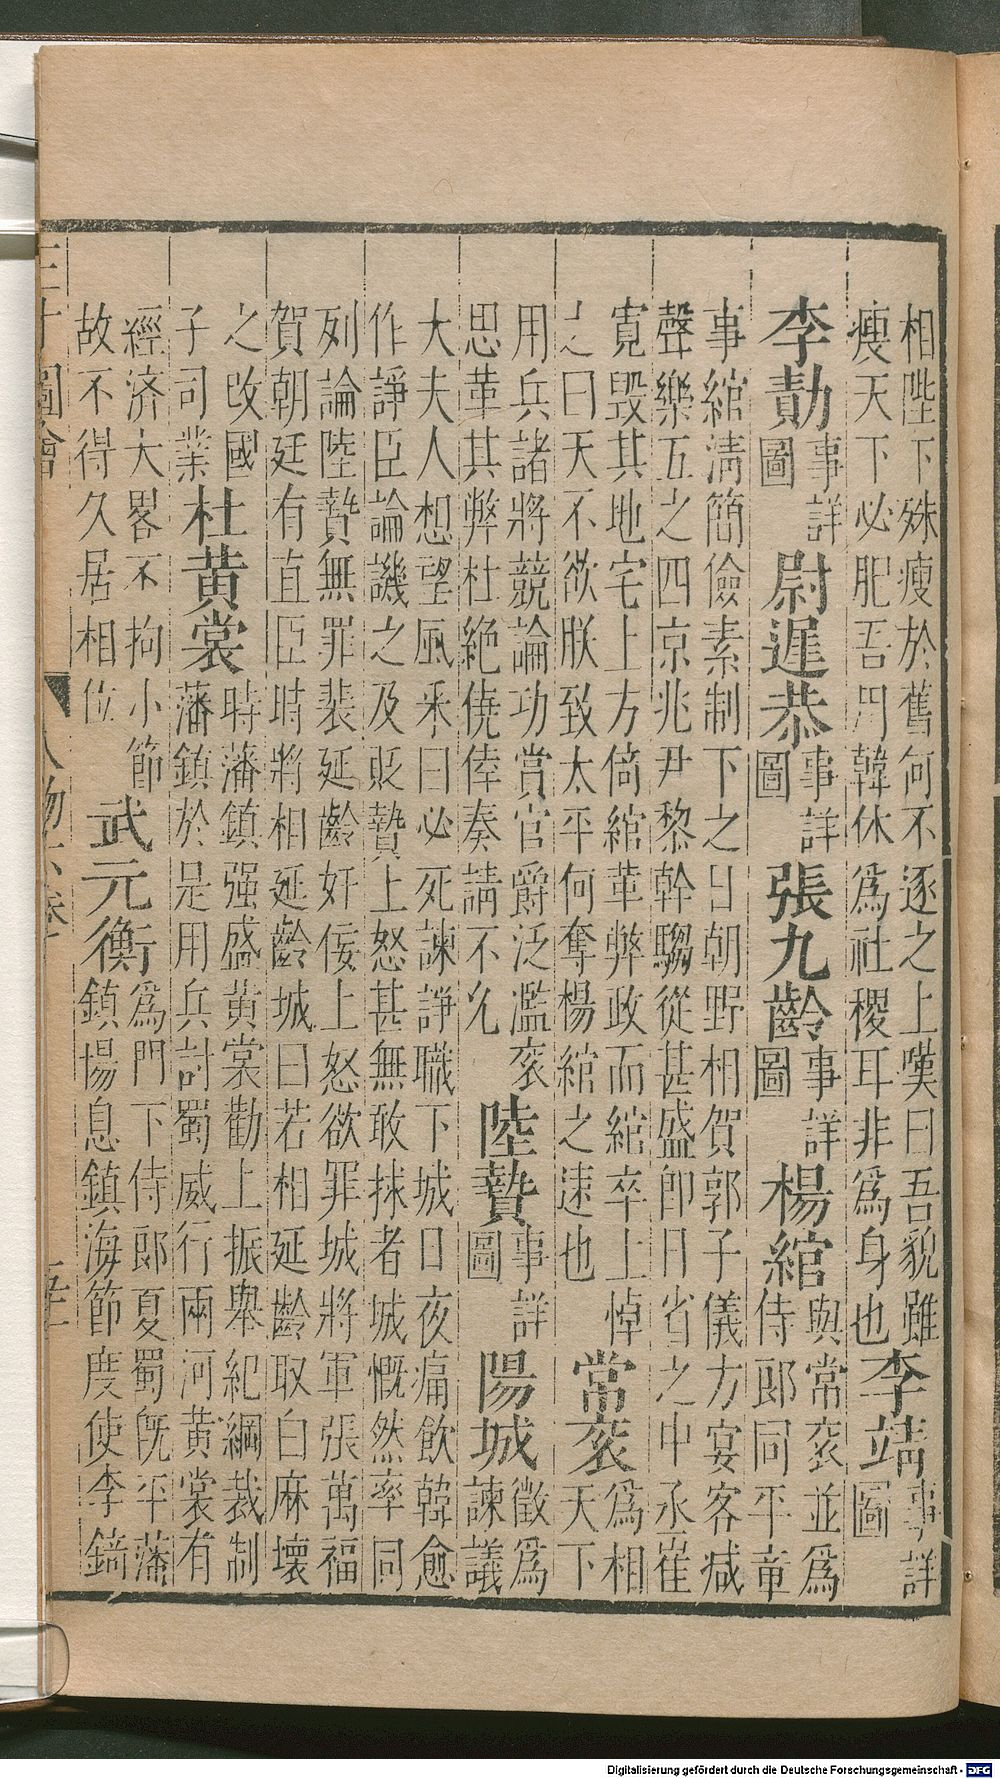 相陛下殊瘦於舊何不逐之上嘆曰吾貌雖
瘦天下必肥吾用韓休爲社稷耳非爲身也
李靖 事詳圖
李勣 事詳圖 尉遲恭 事詳圖 張九齡 事詳圖 楊綰 與常衮並爲
侍郎同平章
事綰清簡儉素制下之日朝野相賀郭子儀方宴客减
聲樂五之四京兆尹黎幹騶從甚盛即日省之中丞崔
寛毀其地宅上方倚綰革弊政而綰卒上悼
之曰天不欲朕致太平何奪楊綰之速也
常衮 爲相
天下
用兵諸將競論功賞官爵泛濫衮
思革其弊杜絶僥倖奏請不允
陸贄 事詳圖 陽城 徵爲
諫議
大夫人想望風采曰必死諫諍職下城日夜痛飲韓愈
作諍臣論譏之及貶贄上怒甚無敢捄者城慨然率同
列論陸贄無罪裴延齡奸佞上怒欲罪城將軍張萬福
賀朝廷有直臣時將相延齡城曰若相延齡取白麻壞
之改國
子司業
杜黄裳 時藩鎮强盛黄裳勸上振舉紀綱裁制
藩鎮於是用兵討蜀威行兩河黄裳有
經濟大畧不拘小節
故不得久居相位
武元衡 爲門下侍郎夏蜀既平藩
鎮揚息鎮海節度使李錡
三才圖會
人物六卷
Digitalisierung gefördert durch die Deutsche Forschungsgemeinschaft - DFG